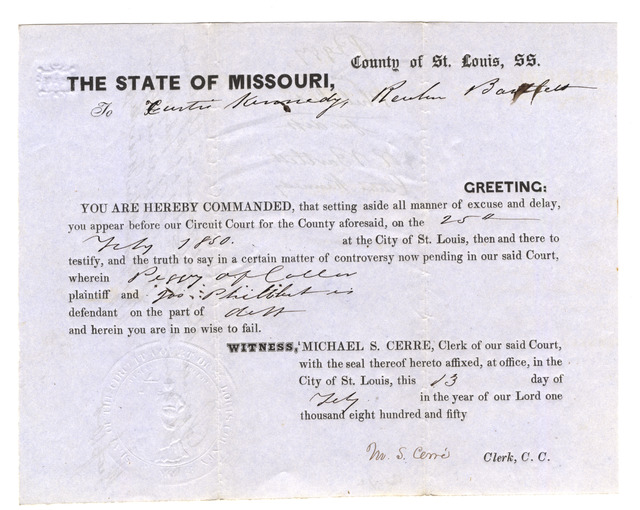 County of St. Louis, SS.
THE STATE OF MISSOURI,
To Curtis Kennedy, Reuben Bartlett
GREETING:
YOU ARE HEREBY COMMANDED, that setting aside all manner of excuse and delay,
you appear before our Circuit Court for the County aforesaid, on the 25
Feby 1850. at the City of St. Louis, then and there to
testify, and the truth to say in a certain matter of controversy now pending in our said Court,
wherein Peggy of Color
plaintiff and is
defendant on the part of deft
and herein you are in no wise to fail.
WITNESS, MICHAEL S. CERRE, Clerk of our said Court,
with the seal thereof hereto affixed, at office, in the
City of St. Louis, this 13 day of
Feby in the year of our Lord one
thousand eight hundred and fifty
M. S. Cerré Clerk, C. C.